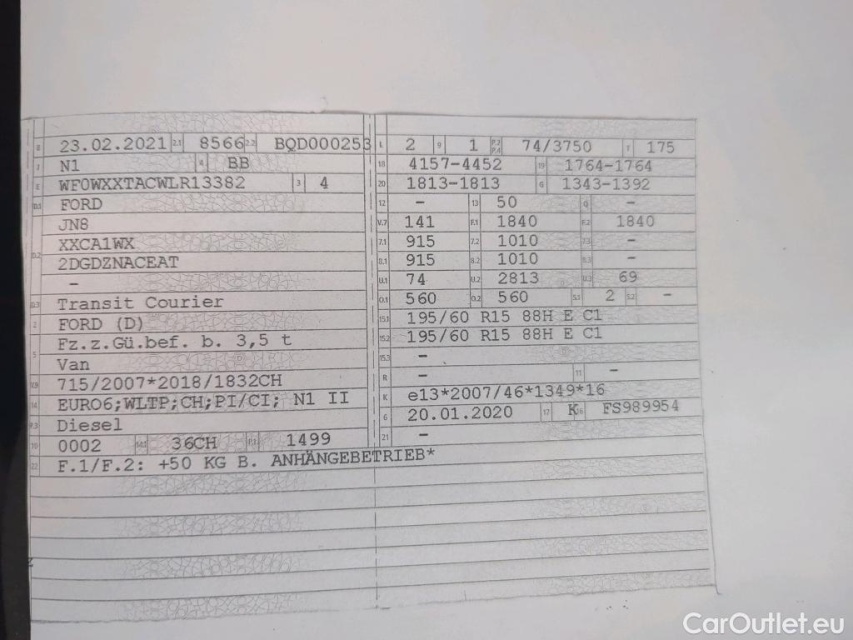 B 23.02.2021 2.1 8566 2.2 BQD000253
J N1 4 BB
E WF0WXXTACWLR13382 3 4
D.1 FORD
JN8
D.2 XXCA1WX
2DGDZNACEAT
–
D.3 Transit Courier
2 FORD (D)
5 Fz.z.Gü.bef. b. 3,5 t
Van
V.9 715/2007*2018/1832CH
14 EURO6;WLTP;CH;PI/CI; N1 II
P.3 Diesel
10 0002 14.1 36CH P.1 1499
22 F.1/F.2: +50 KG B. ANHÄNGEBETRIEB*
L 2 9 1 P.2 P.4 74/3750 T 175
18 4157-4452 19 1764-1764
20 1813-1813 G 1343-1392
12 – 13 50 Q –
V.7 141 F.1 1840 F.2 1840
7.1 915 7.2 1010 7.3 –
8.1 915 8.2 1010 8.3 –
U.1 74 U.2 2813 U.3 69
O.1 560 O.2 560 S.1 2 S.2 –
15.1 195/60 R15 88H E C1
15.2 195/60 R15 88H E C1
15.3 –
R – 11 –
K e13*2007/46*1349*16
6 20.01.2020 17 K 16 FS989954
21 –
CarOutlet.eu